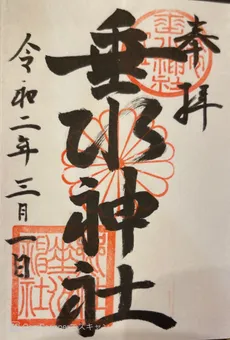 奉拝
垂水神社
令和二年三月一日